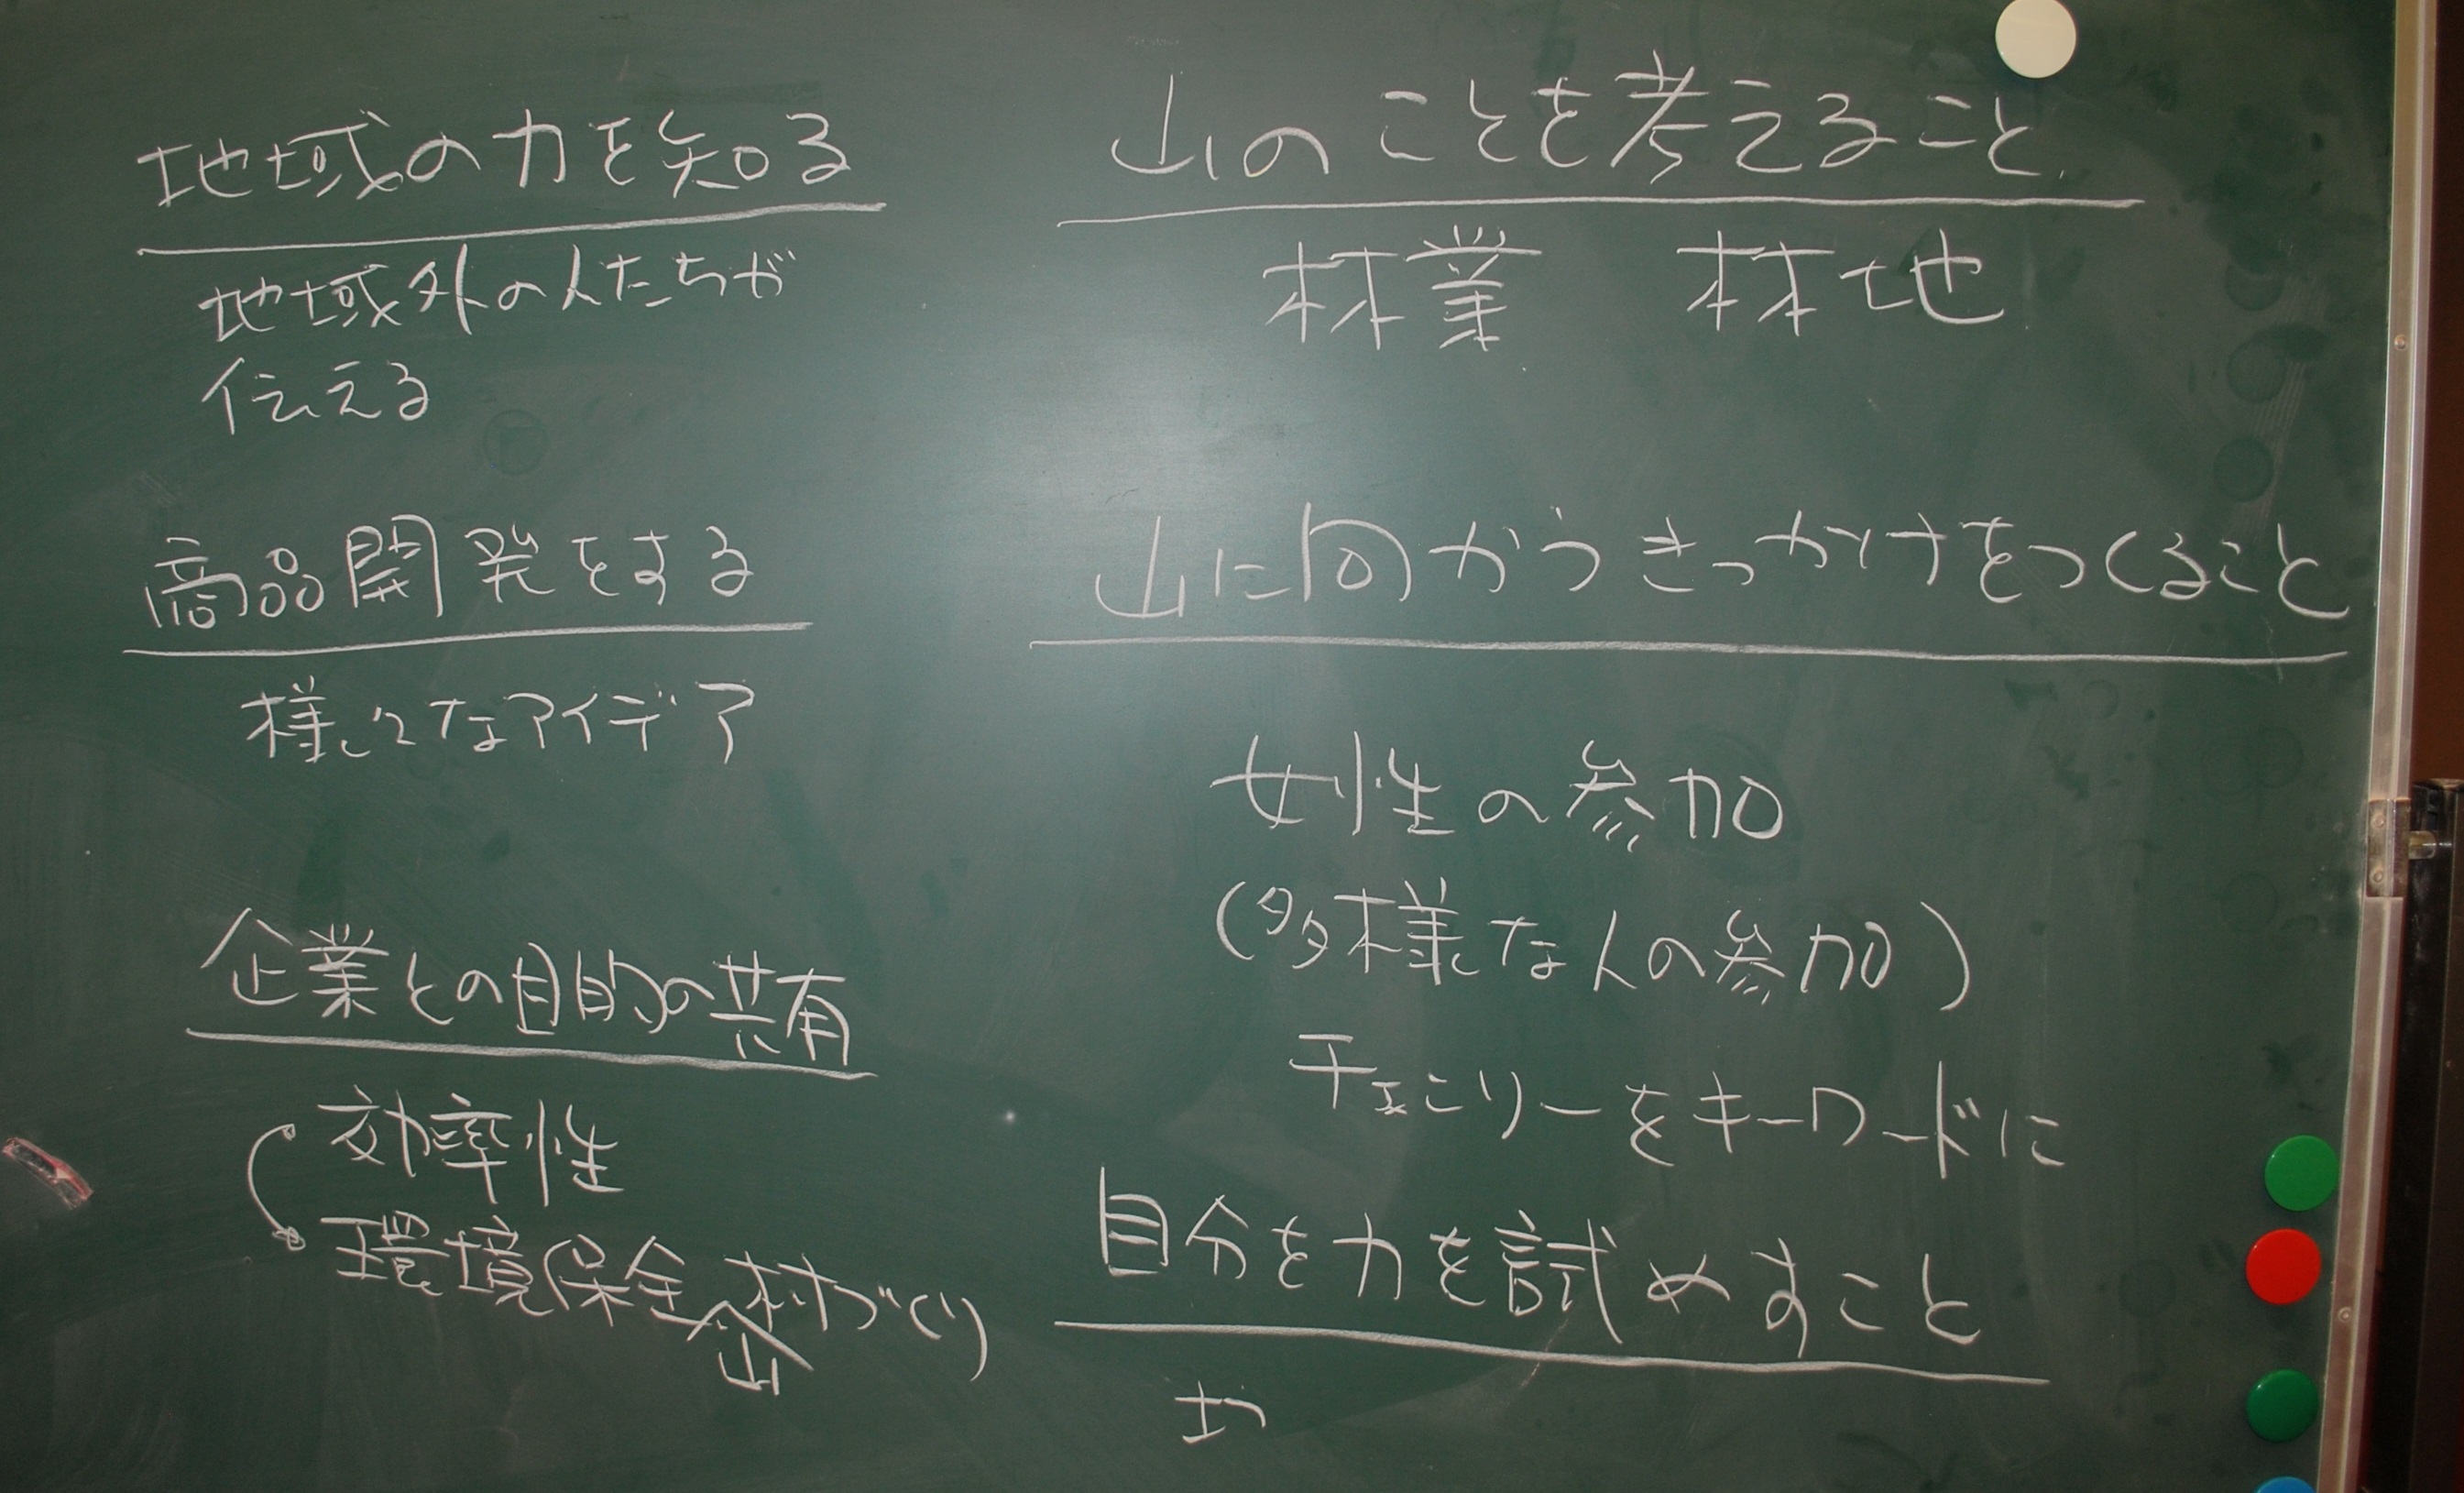 地域の力を知る
地域外の人たちが
伝える
商品開発をする
様々なアイデア
企業との目的の共有
効率性
環境保全 村づくり
山
山のことを考えること
林業 林地
山に向かうきっかけをつくること
女性の参加
(多様な人の参加)
をキーワードに
自分を力を試めすこと